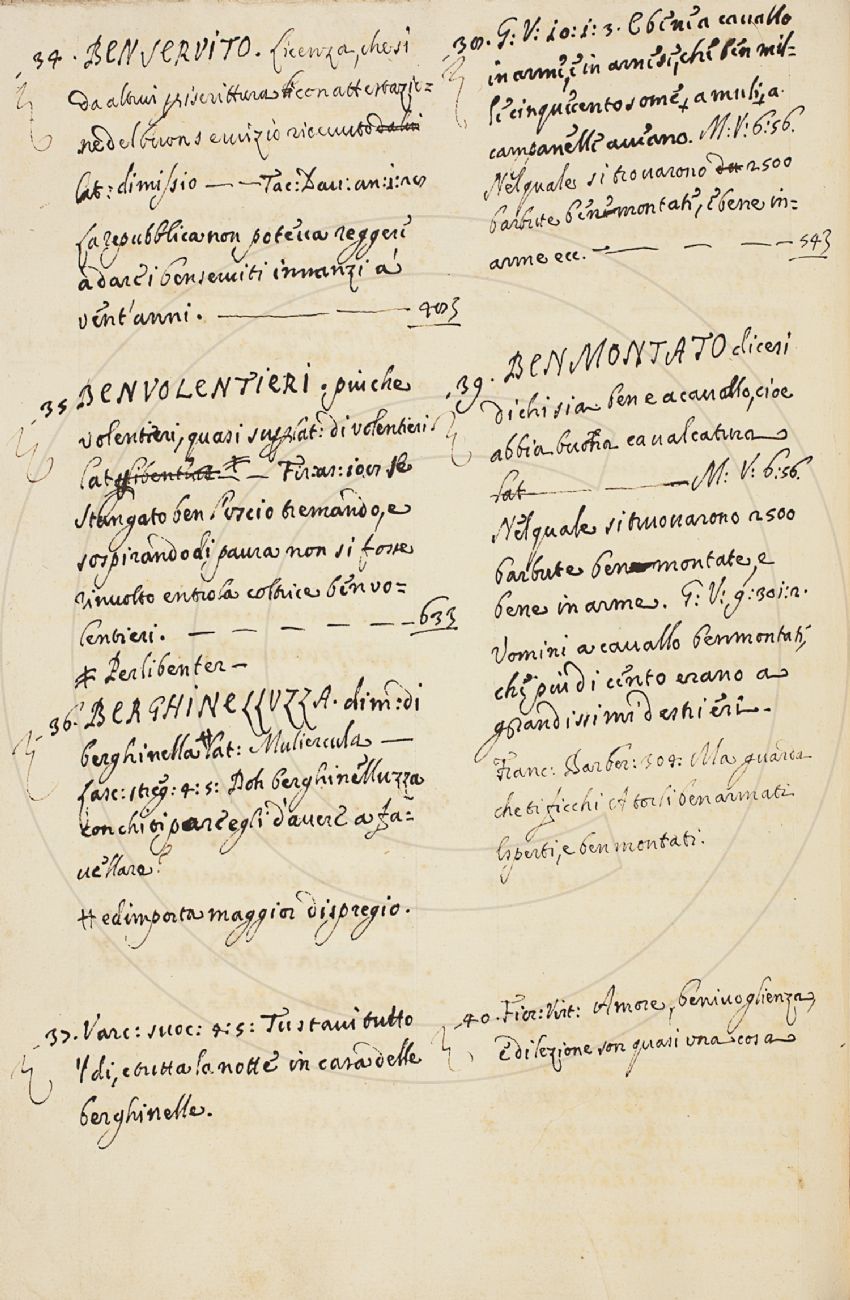 34. BENSERVITO. Licenza, che si
da altrui in iscrittura con attestazio=
ne del buon servizio ricevuto da lui
lat: dimissio — — Tac: Dav: an: 1:
La repubblica non poteva reggere
a dare i benserviti innanzi a'
vent'anni. — —
35 BENVOLENTIERI. piu che
volentieri, quasi suplat: di volentieri.
lat — Fir: as: se
Stangato ben Poscio tremando, e
sospirando di paura non si fosse
rinvolto entro la coltrice ben vo=
lentieri. — — — — — — 633
# Perlibenter —
36. BERGHINELLUZZA. dim: di
berghinella # lat: Muliercula —
Lasc: streg: 4: 5: Doh berghinelluzza
con chi ti pare egli d'avere a fa=
vellare?
# ed importa maggior dispregio.
37. Varc: suoc: 4: 5: Tu stavi tutto
'l di, e tutta la notte in casa delle
berghinelle.
38. G: V: 10: 1: 3. E bene a cavallo
in arme, e in arnesi, che ben mil=
le cinquecento some, a muli, a
campanelle aveano. M: V: 6: 56.
Nel quale si trovarono 2500
barbute bene montati, e bene in=
arme ecc. — — — — 543
39. BEN MONTATO dicesi
di chi sia bene a cavallo, cioe
abbia buona cavalcatura
lat — — M: V: 6: 56.
Nel quale si truovarono 2500
barbute ben montate, e
bene in arme. G: V: 9: 301: 2.
Uomini a cavallo ben montati,
che piu di cento erano a
grandissimi destrieri.
Franc: Barber: 304: Ma guarda
che ti ficchi torli ben armati
Esperti, e ben montati.
40. Fior: Virt: Amore, benivoglienza,
e dilezione son quasi una cosa